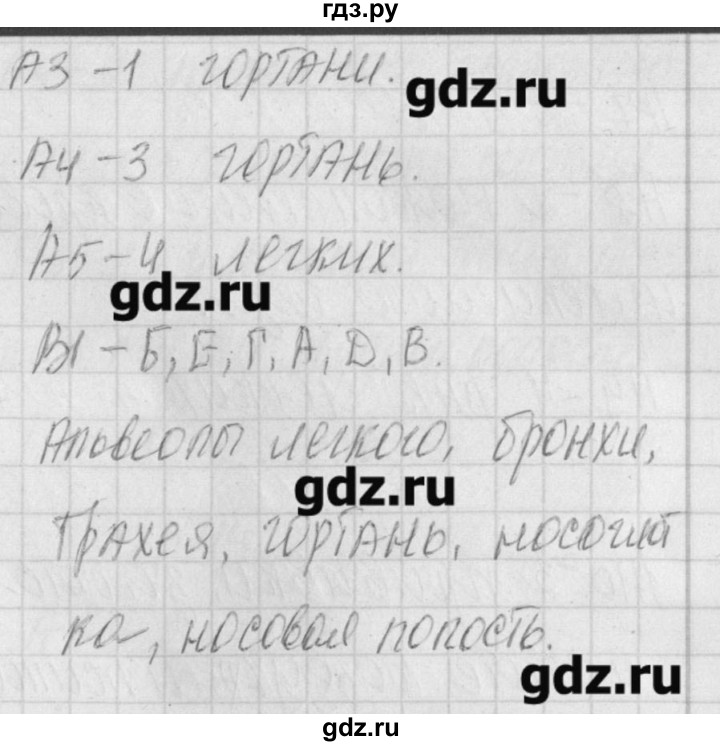 гдз.ру
А3 – 1 гортани.
gdz.ru
А4 – 3 гортань.
А5 – 4 легких.
gdz.ru
В1 – Б, Е, Г, А, D, В.
Альвеолы легкого, бронхи,
gdz.ru
Трахея, гортань, носоглот
ка, носовая полость.
gdz.ru
gdz.ru